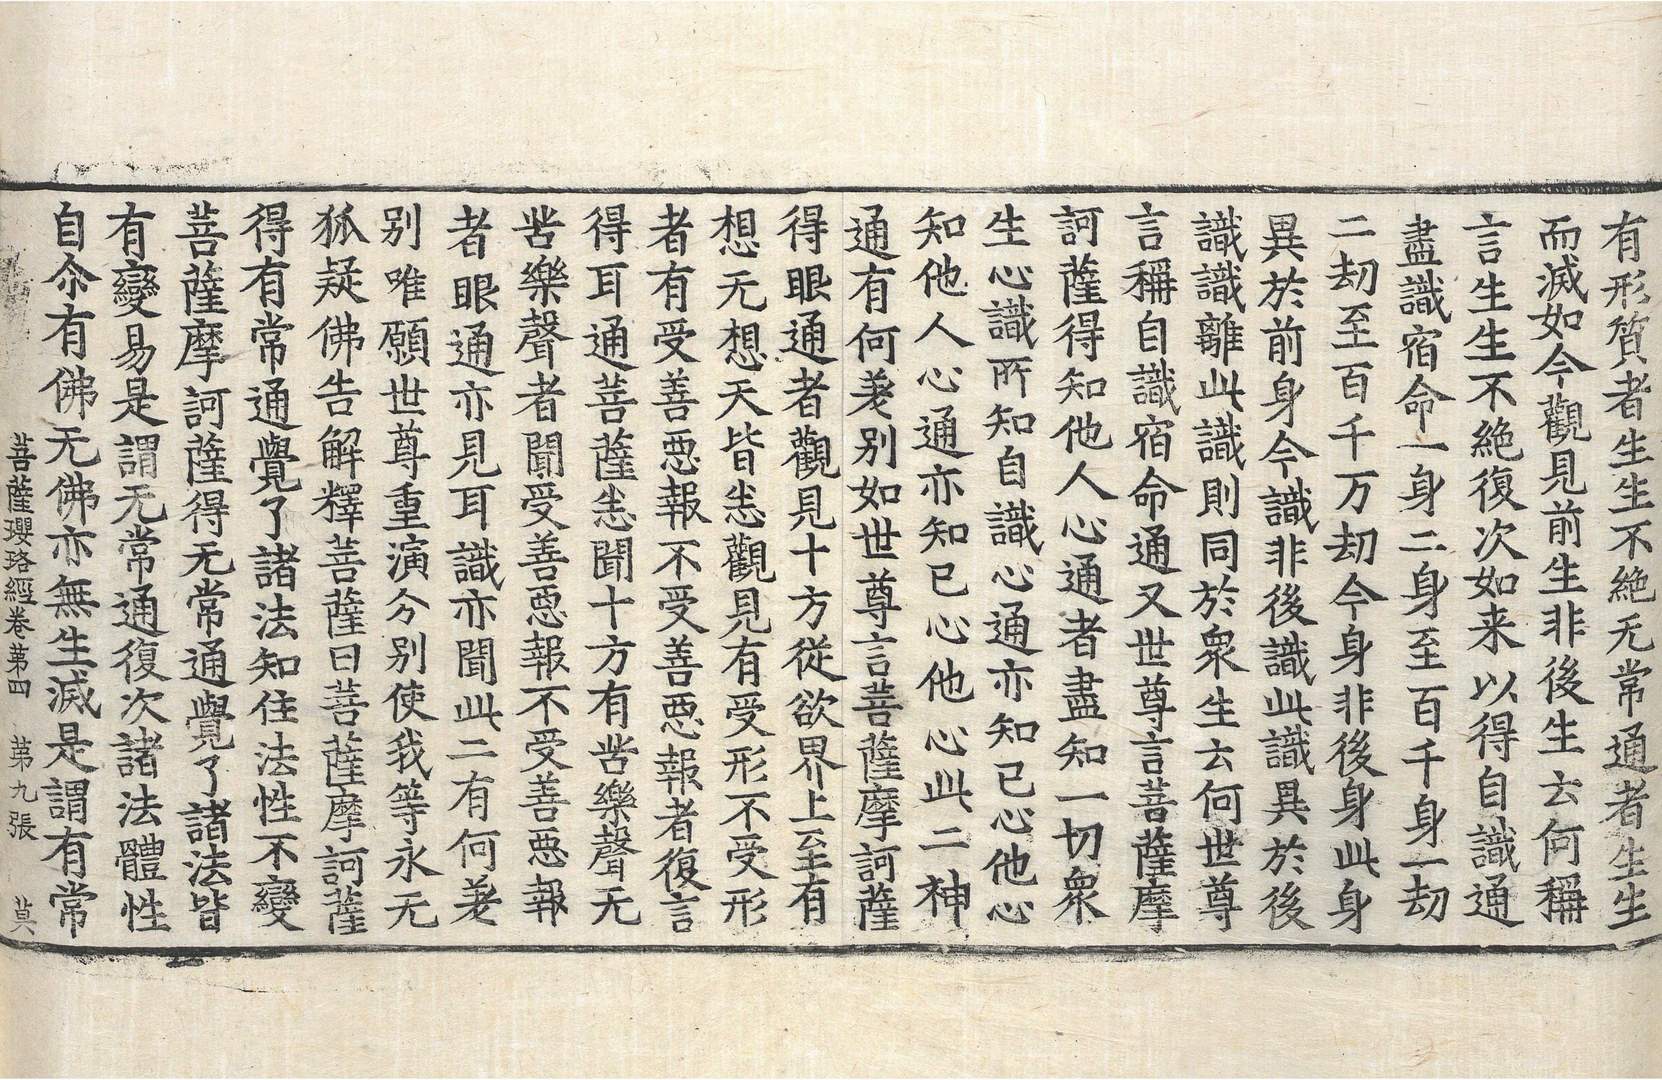 有形質者生生不絶无常通者生生
而滅如今觀見前生非後生云何稱
言生生不絶復次如来以得自識通
盡識宿命一身二身至百千身一劫
二劫至百千万劫今身非後身此身
異於前身今識非後識此識異於後
識識離此識則同於衆生云何世尊
言稱自識宿命通又世尊言菩薩摩
訶薩得知他人心通者盡知一切衆
生心識所知自識心通亦知已心他心
知他人心通亦知已心他心此二神
通有何差别如世尊言菩薩摩訶薩
得眼通者觀見十方從欲界上至有
想无想天皆悉觀見有受形不受形
者有受善惡報不受善惡報者復言
得耳通菩薩悉聞十方有苦樂聲无
苦樂聲者聞受善惡報不受善惡報
者眼通亦見耳識亦聞此二有何差
别唯願世尊重演分别使我等永无
狐疑佛告解釋菩薩曰菩薩摩訶薩
得有常通覺了諸法知住法性不變
菩薩摩訶薩得无常通覺了諸法皆
有變易是謂无常通復次諸法體性
自尒有佛无佛亦無生滅是謂有常
菩薩瓔珞經卷第四 第九張 莫